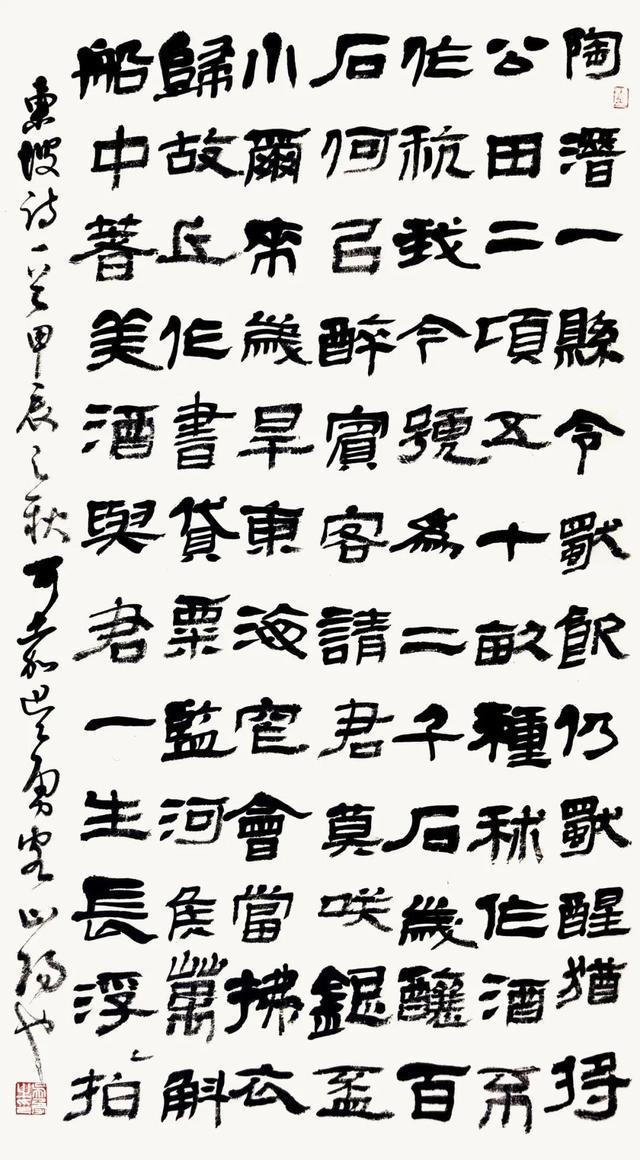 陶潛一縣令獨飲仍獨醒猶將
公田二頃五十畝種秫作酒不
作秔我今號為二千石歲釀百
石何以醉賓客請君莫咲銀盃
小爾來歲旱東海窄會當拂衣
歸故丘作書貸粟監河侯萬斛
船中著美酒與君一生長浮拍
東坡詩一首甲辰之秋可嘉勇客山陽也